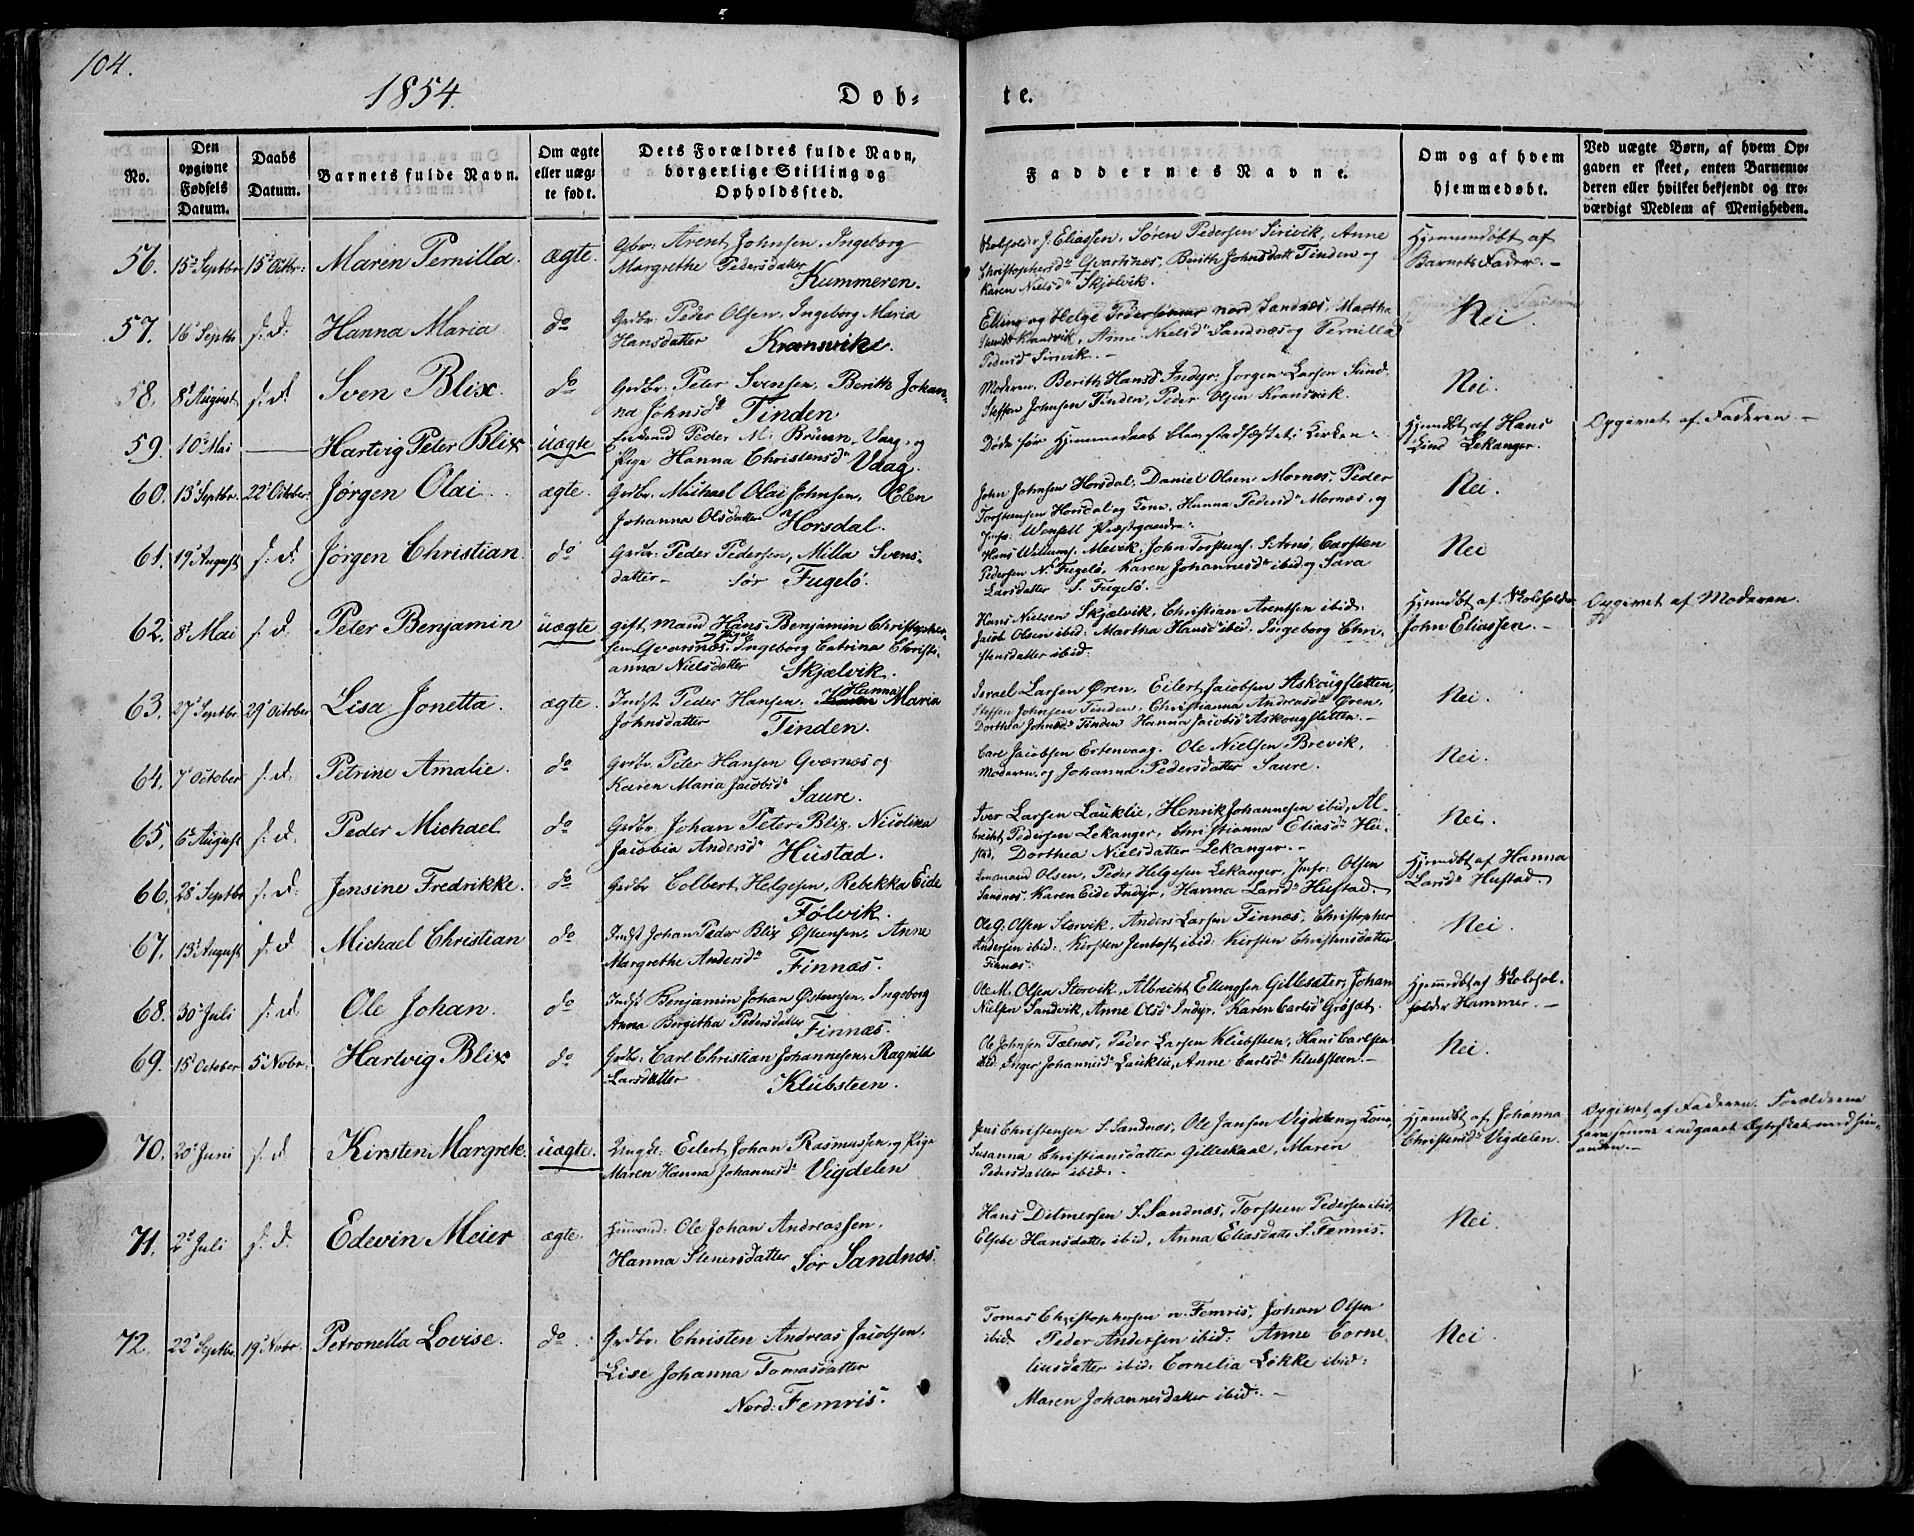 104.
1854.
Døb-
te.
No.
Den opgivne Fødsels Datum.
Daabs Datum.
Barnets fulde Navn.
Om ægte eller uægte født.
Dets Forældres fulde Navn, borgerlige Stilling og Opholdssted.
Faddernes Navne.
Om og af hvem hjemmedøbt.
Ved uægte Børn, af hvem Opgaven er skeet, enten Barnemoderen eller hvilket bekjendt og troværdigt Medlem af Menigheden.
56. 15d Septbr 15d Octbr: Maren Pernilla. ægte. Gbr: Arent Johnsen, Ingeborg
Margrethe Pedersdatter
Kummeren.
J. Eliassen, Søren Pedersen Sirivik, Anne
Christophersdr Qvarsnæs, Berith Johnsdatt Tinden og
Karen Nielsdr Skjelvik.
Hjemmedøbt af
Barnets Fader.
57. 16 Septbr s: D: Hanna Maria do Grdbr: Peder Olsen, Ingeborg Maria
Hansdatter Kransvik.
Elling og Helge Pedersønner nord Sandnæs, Martha
Anne Nielsdr Sandnæs og Pernilla
Pedersd Sirivik.
Nei.
58. 8d August s: D: Sven Blix. do Grdbr: Peter Svensen, Berith Johan-
na Johnsdr Tinden
Moderen, Berith Hansdr Indyr, Jørgen Larsen Sund,
Steffen Johnsen Tinden, Peder Olsen Kransvik.
Nei.
59. 10d Mai Hartvig Peter Blix uægte Peder M. Brüun, Vaag, og
Pige Hanna Christensdr Vaag.
Døde før Hjemmedaab blev stadfæstet i Kirken.
Hjemdbt af Hans
Lind Lekanger.
Opgivet af Faderen.
60. 13d Septbr. 22d October Jørgen Olai. ægte. Grdbr. Michael Olai Johnsen, Elen
Johanna Olsdatter Horsdal.
John Johnsen Horsdal, Daniel Olsen Mornæs, Peder
Torstensen Horsdal og Hanna Pedersdr Mornæs, og
Jnfr: Wensell Præstgaarden:
Nei.
61. 19d August s: D: Jørgen Christian. do Grdbr: Peder Pedersen, Milla Svens-
datter Sør Fugelø.
Hans Mevik, John Torstens. S. Arnø, Carsten
Pedersen N. Fugelø, Karen Johannesdr ibid og Sara
Larsdatter S. Fugelø.
Nei
62. 8d Mai s: D. Peter Benjamin uægte gift Mand Hans Benjamin Christopher-
sen Qvarsnæs, Pige Ingeborg Catrina Christi-
anna Nielsdatter Skjælvik.
Hans Nielsen Skjælvik, Christian Arentsen ibid:
Jacob Olsen ibid: Martha Hansdr ibid, Ingeborg Chri-
stensdatter ibid:
Hjemdbt af Skoleholder
John Eliassen.
Opgivet af Moderen.
63. 27d Septbr. 29d October Lisa Jonetta. ægte. Indst Peder Hansen, Hanna Maria
Johnsdatter Tinden.
Israel Larsen Øren, Eilert Jacobsen Askougsletten,
Steffen Johnsen Tinden, Christianna Andreasdr Øren,
Dorthea Johnsdr Tinden Hanna Jacobsdr Askougsletten.
Nei.
64. 7d October s: D. Petrine Amalie. do. Grdbr. Peter Hansen Qværnæs og
Karen Maria Jacobsdr
Saure.
Carl Jacobsen Ertenvaag. Ole Nielsen Brevik,
Moderen, og Johanna Pedersdatter Saure.
Nei.
65. 6d August s: D. Peder Michael do. Grdbr: Johan Peter Blix, Nicolina
Jacobia Andersdr Hustad.
Iver Larsen Lauklie, Henrik Johannesen ibid, Al-
brecht Pedersen Lekanger, Christianna Eliasdr Hei-
stad, Dorthea Nielsdatter Lekanger.
Nei.
66. 28d Septbr s: D. Jensine Fredrikke. do. Grdbr Colbert Helgesen, Rebekka Eide
Følvik.
Olsen, Peder Helgesen Lekanger, Jnfr: Olsen
Sandnæs, Karen Eide Indyr, Hanna Larsdr Hustad.
Hjemdbt af Hanna
Larsdr Hustad.
67. 13d August s: D. Michael Christian do. Indst Johan Peder Blix Østensen, Anne
Margrethe Andersdr Finnæs.
Ole G: Olsen Storvik, Anders Larsen Finnæs, Christopher
Andersen ibid: Kirsten Jentoft ibid: Kirsten Christensdatter
Finnæs:
Nei.
68. 30d Juli s: D. Ole Johan. do Indst Benjamin Johan Østensen, Ingeborg
Anna Birgitha Pedersdatter Finnæs.
Ole M. Olsen Storvik, Albrecht Ellingsen Gillesæter, Johan
Nielsen Sandvik, Anne Olsdr Indyr, Karen Carlsdr Grosæt.
Hjemdbt af Skolehol-
holder Hammer.
69. 15d October 5d Novbr: Hartvig Blix do. Grdbr: Carl Christian Johannesen, Ragnild
Larsdatter Klubsteen.
Ole Johnsen Tælnæs, Peder Larsen Klubsteen, Hans Carlsen
ibid: Inger Johannesdr Lauklie, Anne Carlsdr Klubsteen.
Nei.
70. 20d Juni s: D. Kirsten Margrete uægte. Ungk: Eilert Johan Rasmussen, og Pige
Maren Hanna Johannesdr Vigdelen
Jens Christensen S. Sandnæs, Ole Jansen Vigdelen og Kone,
Susanna Christiansdatter Gilleskaal, Maren
Pedersdatter ibid:
Hjemdbt af Johanna
Christensdr Vigdelen.
Opgivet af Faderen. Forældrene
have senere indgaaet Ægteskab med hin-
anden.
71. 2d Juli s. D. Edevin Meier ægte. Ole Johan Andreassen,
Hanna Stenersdatter Sør Sandnæs.
Hans Ditmersen S. Sandnæs, Torsteen Pedersen ibid.
Elsebe Hansdatter ibid, Anna Eliasdatt. S. Femris.
Nei.
72. 22d Septbr. 19d Novbr. Petronella Lovise. do. Grdbr: Christen Andreas Jacobsen,
Lise Johanna Tomasdatter
Nord: Femris.
Tomas Christophersen n. Femris, Johan Olsen
ibid Peder Andersen ibid: Anne Corne-
liusdatter ibid: Cornelia Løkke ibid:
Maren Johannesdatter ibid:
Nei.